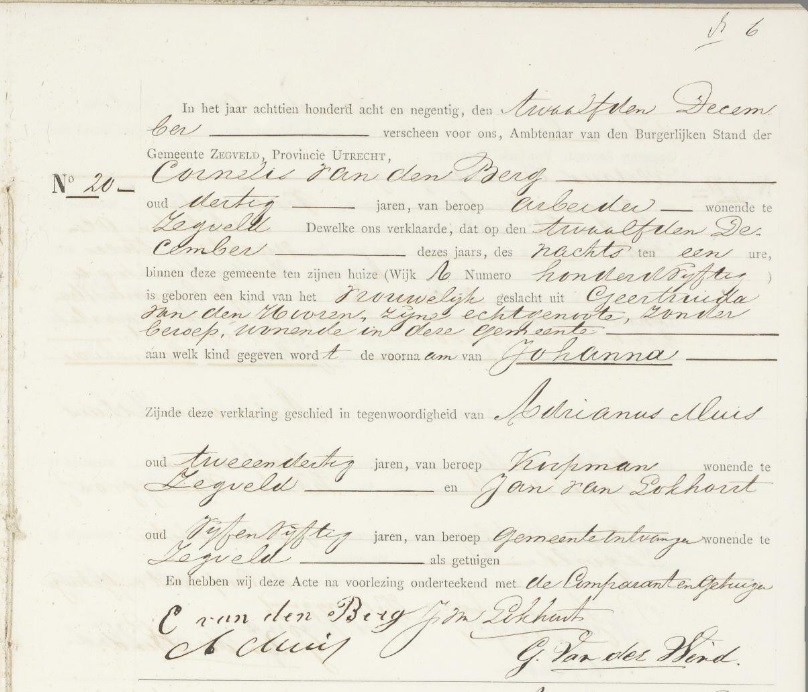 6
In het jaar achttien honderd acht en negentig, den twaalfden Decem
ber verscheen voor ons, Ambtenaar van den Burgerlijken Stand der
Gemeente ZEGVELD, Provincie UTRECHT,
No 20 Cornelis van den Berg
oud dertig jaren, van beroep arbeider wonende te
Zegveld Dewelke ons verklaarde, dat op den twaalfden De-
cember dezes jaars, des nachts ten een ure,
binnen deze gemeente ten zijnen huize (Wijk A Numero honderd vijftig )
is geboren een kind van het vrouwelijk geslacht uit Geertruida
van den Hooren, zijne echtgenoote, zonder
beroep, wonende in deze gemeente
aan welk kind gegeven wordt de voornaam van Johanna
Zijnde deze verklaring geschied in tegenwoordigheid van Adrianus Muis
oud tweeendertig jaren, van beroep Koopman wonende te
Zegveld en Jan van Lokhorst
oud vijfenvijftig jaren, van beroep gemeenteontvanger wonende te
Zegveld als getuigen
En hebben wij deze Acte na voorlezing onderteekend met de Comparant en Getuigen
C van den Berg J v Lokhorst
A Muis
G. Van der Wind.